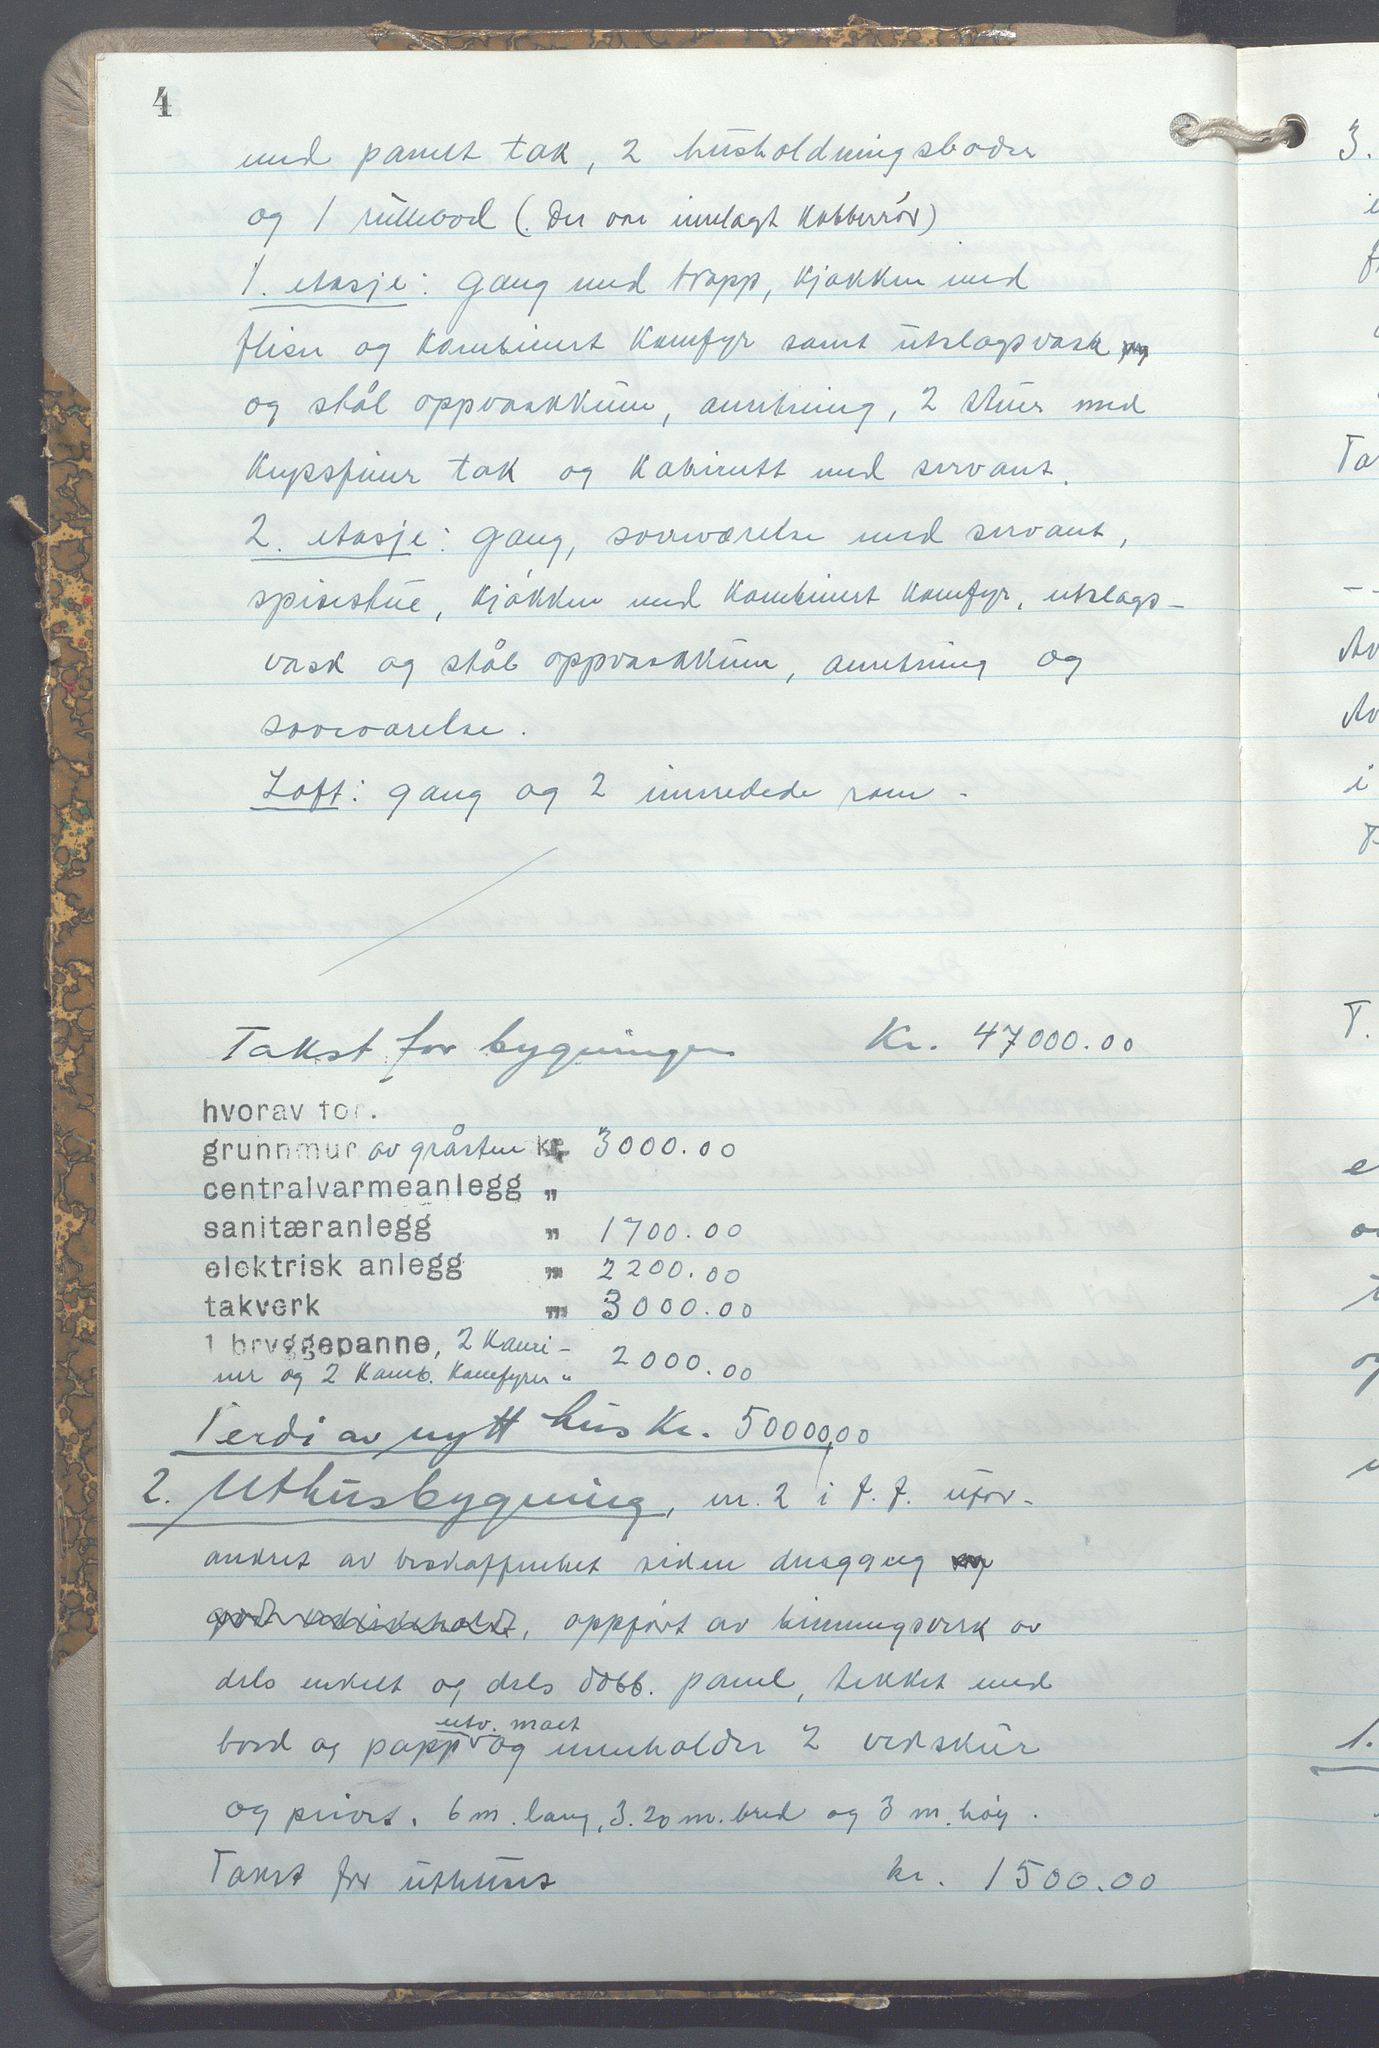 4
med panelt tak, 2 husholdningsboder
og 1 rullebod (. Der var innlagt kobberrør)
1. etasje: gang med trapp, kjøkken med
fliser og kombinert komfyr samt utslagsvask
og stål oppvaskkum, anretning, 2 stuer med
tak og kabinett med servant.
2. etasje: gang, soveværelse med servant,
spisestue, kjøkken med kombinert komfyr, utslags-
vask og stål oppvaskkum, anretning og
soveværelse.
Loft: gang og 2 innredede rom -
Takst for bygningen Kr. 47000.00
hvorav for.
grunnmur av gråsten kr. 3000.00
centralvarmeanlegg "
sanitæranlegg " 1700.00
elektrisk anlegg " 2200.00
takverk " 3000.00
1 bryggepanne, 2 kami-
ner og 2 komb. komfyrer " 2000.00
Verdi av nytt hus Kr. 50000,00
2. Uthusbygning, nr. 2 i f. f. ufor-
andret av beskaffenhet siden dengang
godt vedlikeholdt, oppført av binningsverk av
dels enkelt og dels dobb. panel, tekket med
utv. malt
bord og papp og inneholder 2 vedskur
og privet. 6 m. lang, 3.20 m. bred og 3 m. høy.
Takst for uthuset kr. 1500.00
3.
Ta
Av
Av
i
T.
1.